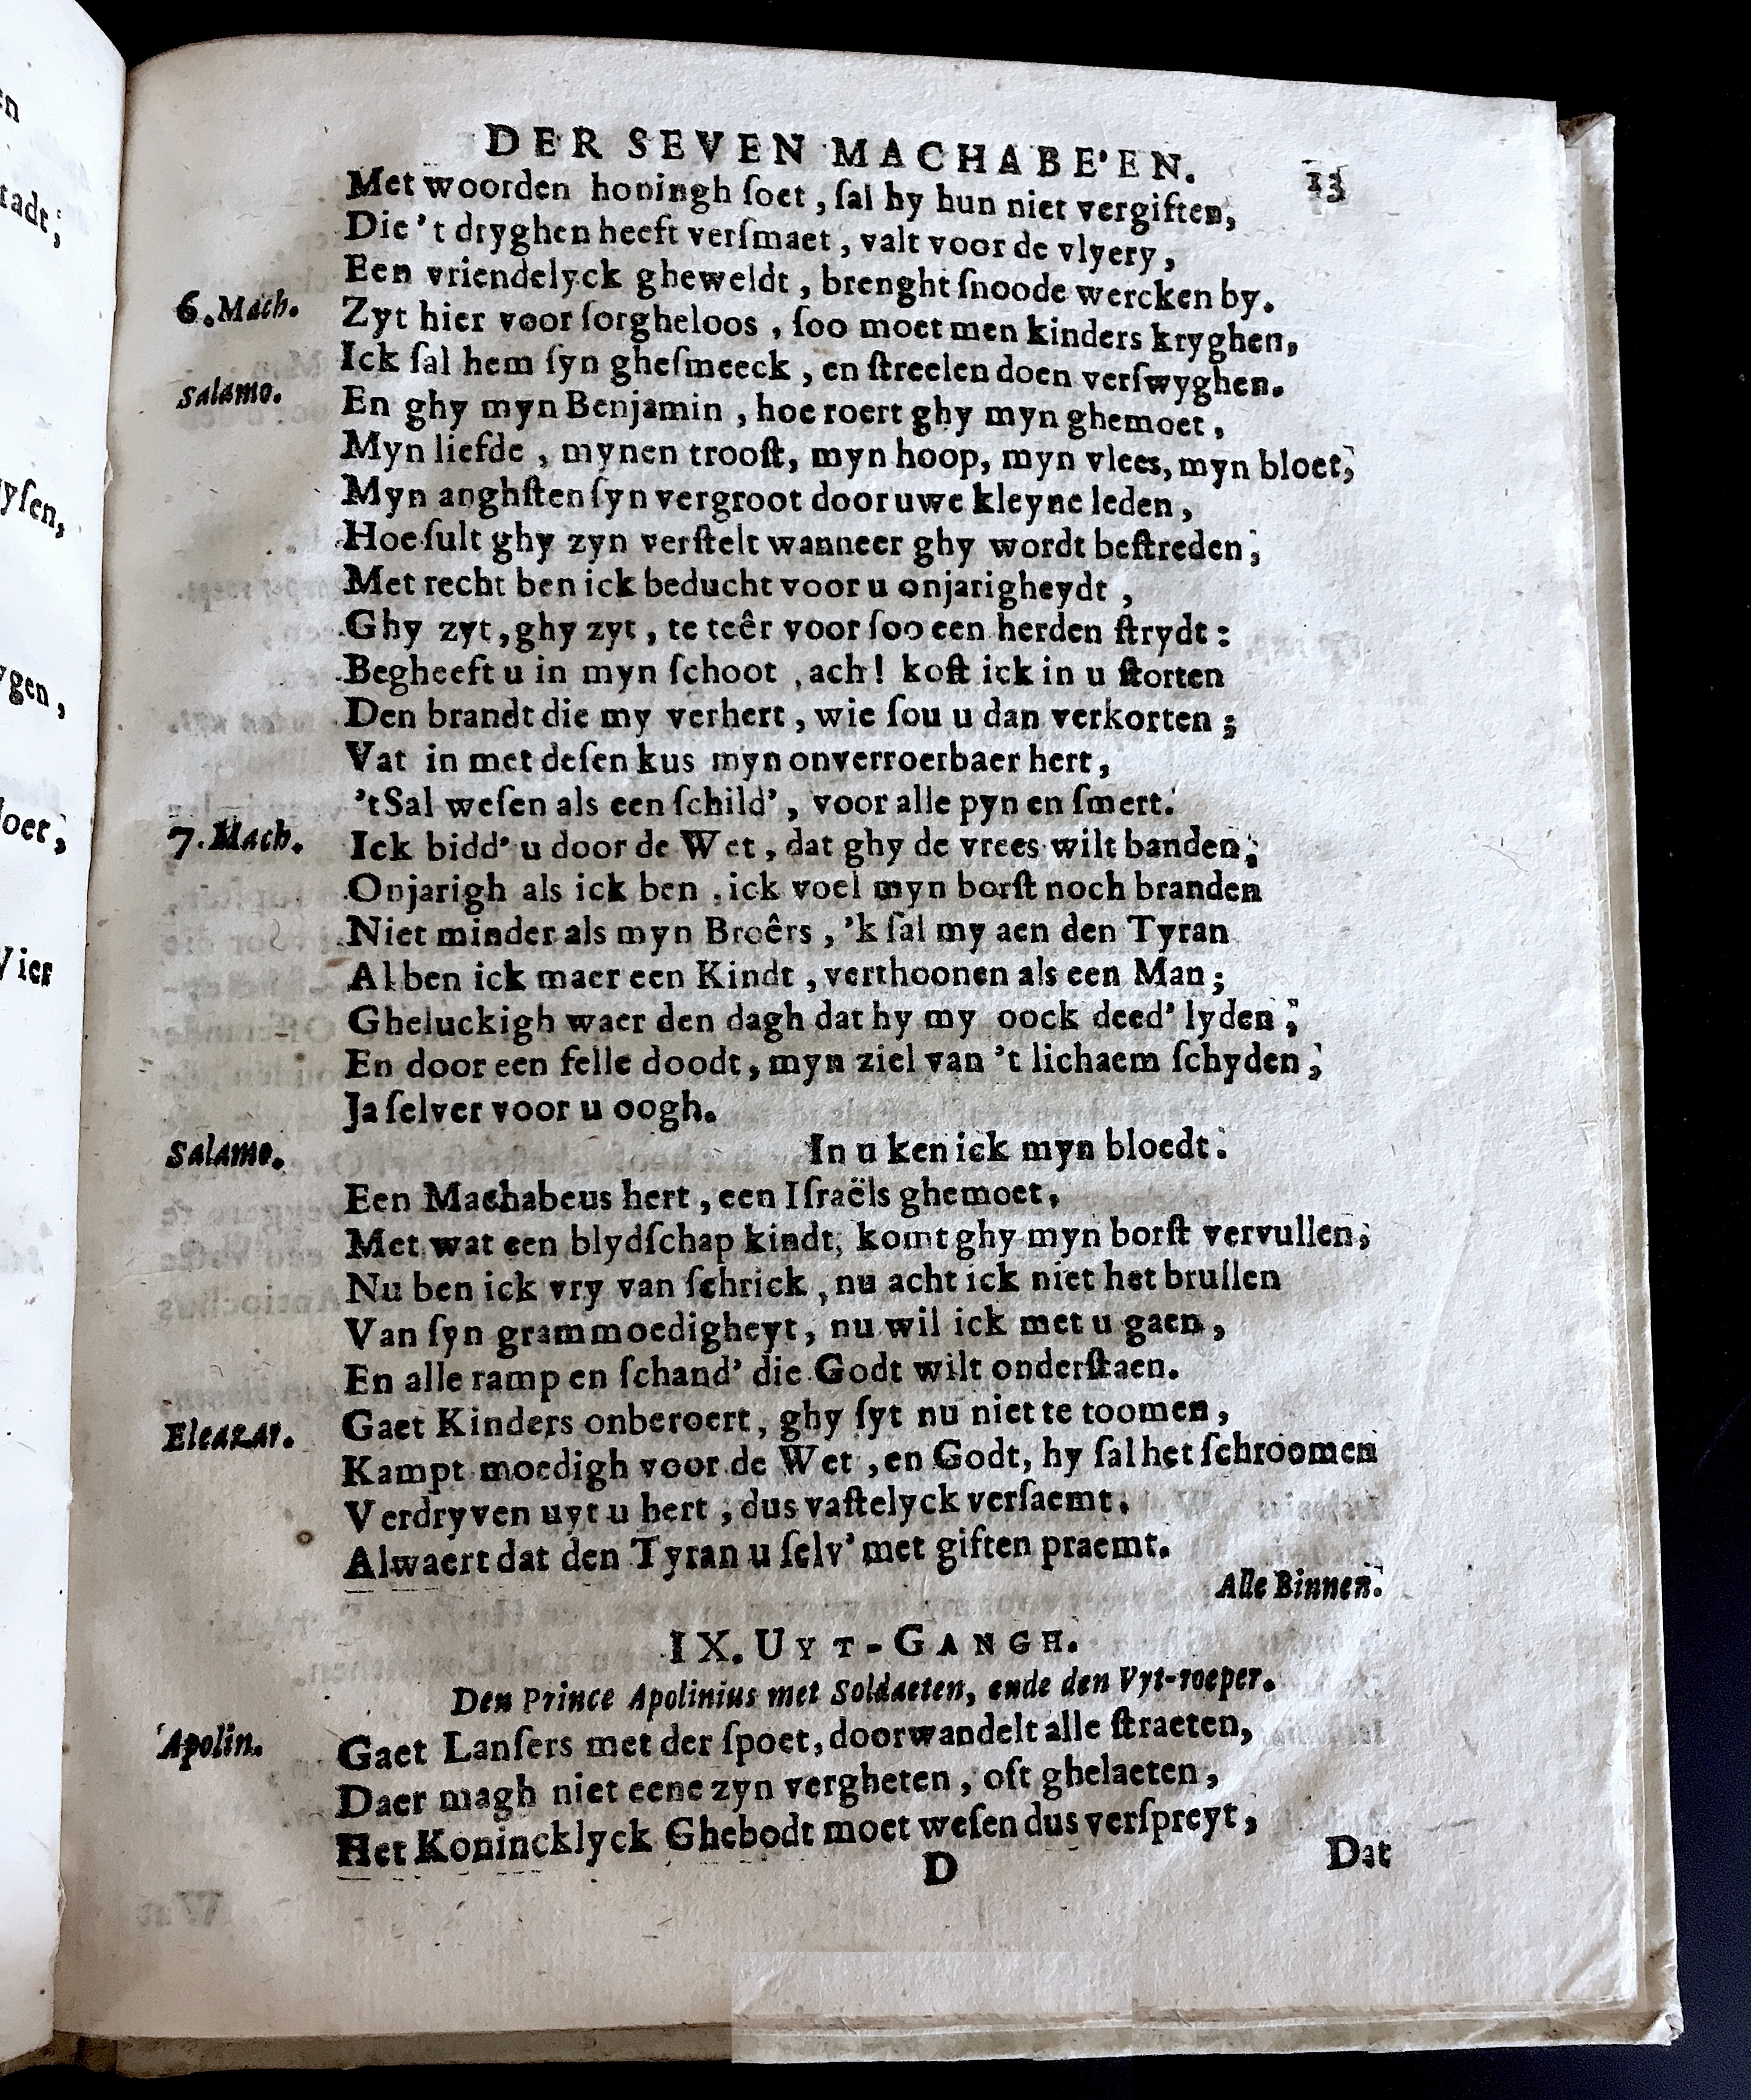 DER SEVEN MACHABE'EN. 13
Met woorden honingh ſoet, ſal hy hun niet vergiften,
Die 't dryghen heeft verſmaet, valt voor de vlyery,
Een vriendelyck gheweldt, brenght ſnoode wercken by.
6. Mach. Zyt hier voor ſorgheloos, ſoo moet men kinders kryghen,
Ick ſal hem ſyn gheſmeeck, en ſtreelen doen verſwyghen.
Salamo. En ghy myn Benjamin, hoe roert ghy myn ghemoet,
Myn liefde, mynen trooſt, myn hoop, myn vlees, myn bloet;
Myn anghſten ſyn vergroot door uwe kleyne leden,
Hoe ſult ghy zyn verſtelt wanneer ghy wordt beſtreden;
Met recht ben ick beducht voor u onjarigheydt,
Ghy zyt, ghy zyt, te teêr voor ſoo een herden ſtrydt:
Begheeft u in myn ſchoot, ach! koſt ick in u ſtorten
Den brandt die my verhert, wie ſou u dan verkorten;
Vat in met deſen kus myn onverroerbaer hert,
't Sal weſen als een ſchild', voor alle pyn en ſmert.
7. Mach. Ick bidd' u door de Wet, dat ghy de vrees wilt banden;
Onjarigh als ick ben, ick voel myn borſt noch branden
Niet minder als myn Broêrs, 'k ſal my aen den Tyran
Al ben ick maer een Kindt, verthoonen als een Man;
Gheluckigh waer den dagh dat hy my oock deed' lyden;
En door een felle doodt, myn ziel van 't lichaem ſchyden;
Ja ſelver voor u oogh.
Salamo. In u ken ick myn bloedt.
Een Machabeus hert, een Iſraëls ghemoet,
Met wat een blydſchap kindt, komt ghy myn borſt vervullen;
Nu ben ick vry van ſchrick, nu acht ick niet het brullen
Van ſyn grammoedigheyt, nu wil ick met u gaen,
En alle ramp en ſchand' die Godt wilt onderſtaen.
Eleazar. Gaet Kinders onberoert, ghy ſyt nu niet te toomen,
Kampt moedigh voor de Wet, en Godt, hy ſal het ſchroomen
Verdryven uyt u hert, dus vaſtelyck verſaemt,
Alwaert dat den Tyran u ſelv' met giften praemt.
Alle Binnen.
IX. UYT-GANGH.
Den Prince Apolinius met Soldaeten, ende den Vyt-roeper.
Apolin. Gaet Lanſers met der ſpoet, doorwandelt alle ſtraeten,
Daer magh niet eene zyn vergheten, oft ghelaeten,
Het Konincklyck Ghebodt moet weſen dus verſpreyt,
D Dat